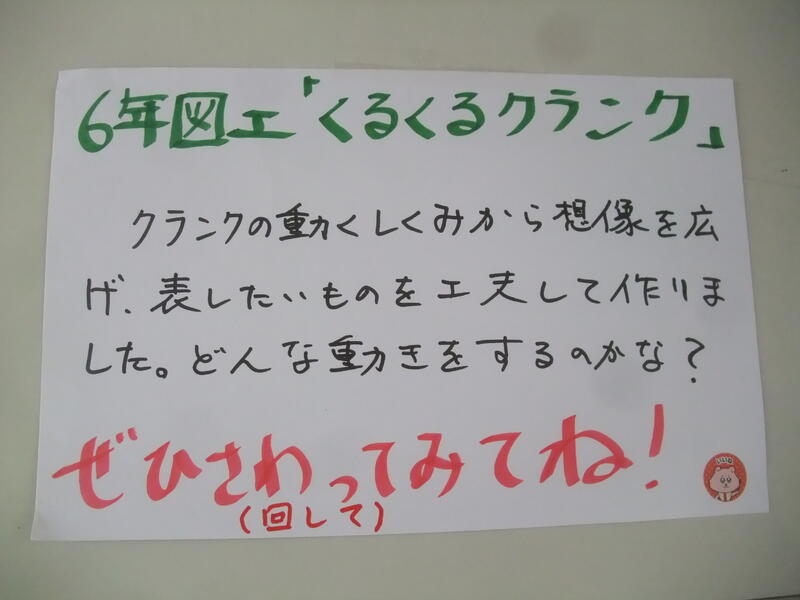 6年図工「くるくるクランク」
クランクの動くしくみから想像を広
げ、表したいものを工夫して作りま
した。どんな動きをするのかな?
ぜひさわってみてね!
(回して)